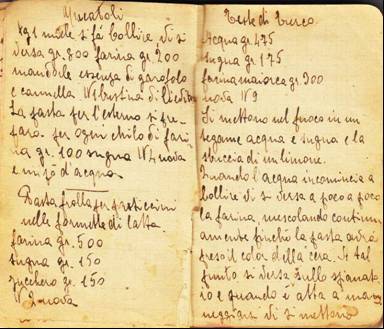 Mucatoli
Kg 1 miele si fà bollire, di si
versa gr. 800 farina gr. 200
mandorle essenza di garofolo
e cannella N 1 bustina di
La pasta per l'esterno si pre-
para. per ogni chilo di fari
na gr. 100 sugna N 4 uova
e un pò d'acqua.
Pasta frolla per pasticcini
nelle formette di latta
farina gr. 500
sugna gr. 150
zucchero gr. 150
N 2 uova
Teste di Turco.
Acqua gr 475
Sugna gr 175
farina maiorca gr. 300
uova N 9
Si mettono nel fuoco in un
tegame acqua e sugna e la
sbuccia di un limone.
Quando l'acqua incomincia a
bollire di si versa a poco a poco
la farina, mescolando continu
amente finchè la pasta avrà
preso il color della cera. A tal
punto si versa sullo spianato
io e quando è atta a ma
neggiarsi di si mettono